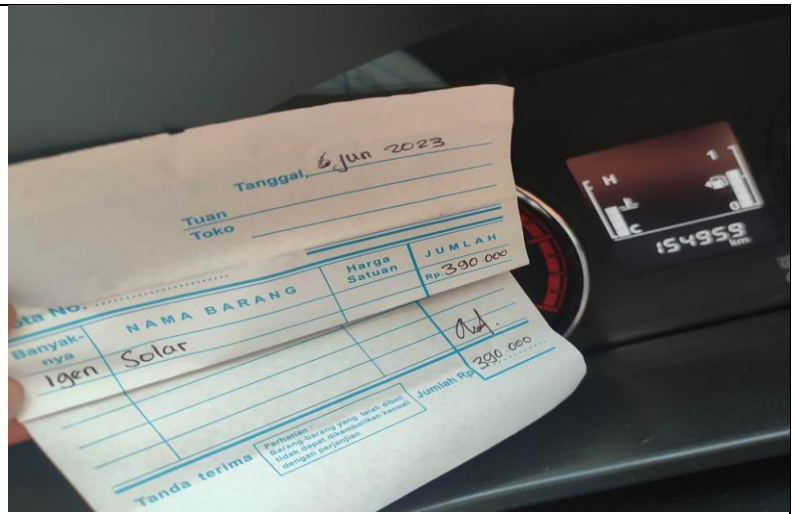 Tanggal, 6 Jun 2023
Tuan
Toko
ota No. ....................
Banyak-nya NAMA BARANG Harga Satuan JUMLAH
1gen Solar Rp. 390.000
Jumlah Rp. 390.000
Tanda terima
Perhatian :
Barang-barang yang telah dibeli
tidak dapat dikembalikan kecuali
dengan perjanjian.
F H 1
C 0
154959
km